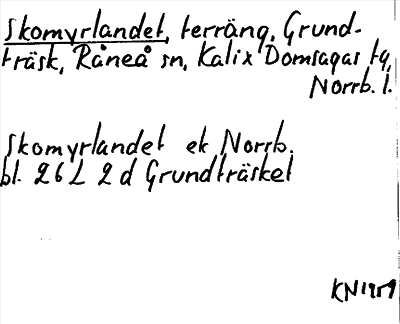 Skomyrlandet, terräng, Grund-
träsk, Råneå sn, Kalix Domsagas tg,
Norrb. l.
Skomyrlandet ek Norrb.
bl. 26 L 2 d Grundträsket